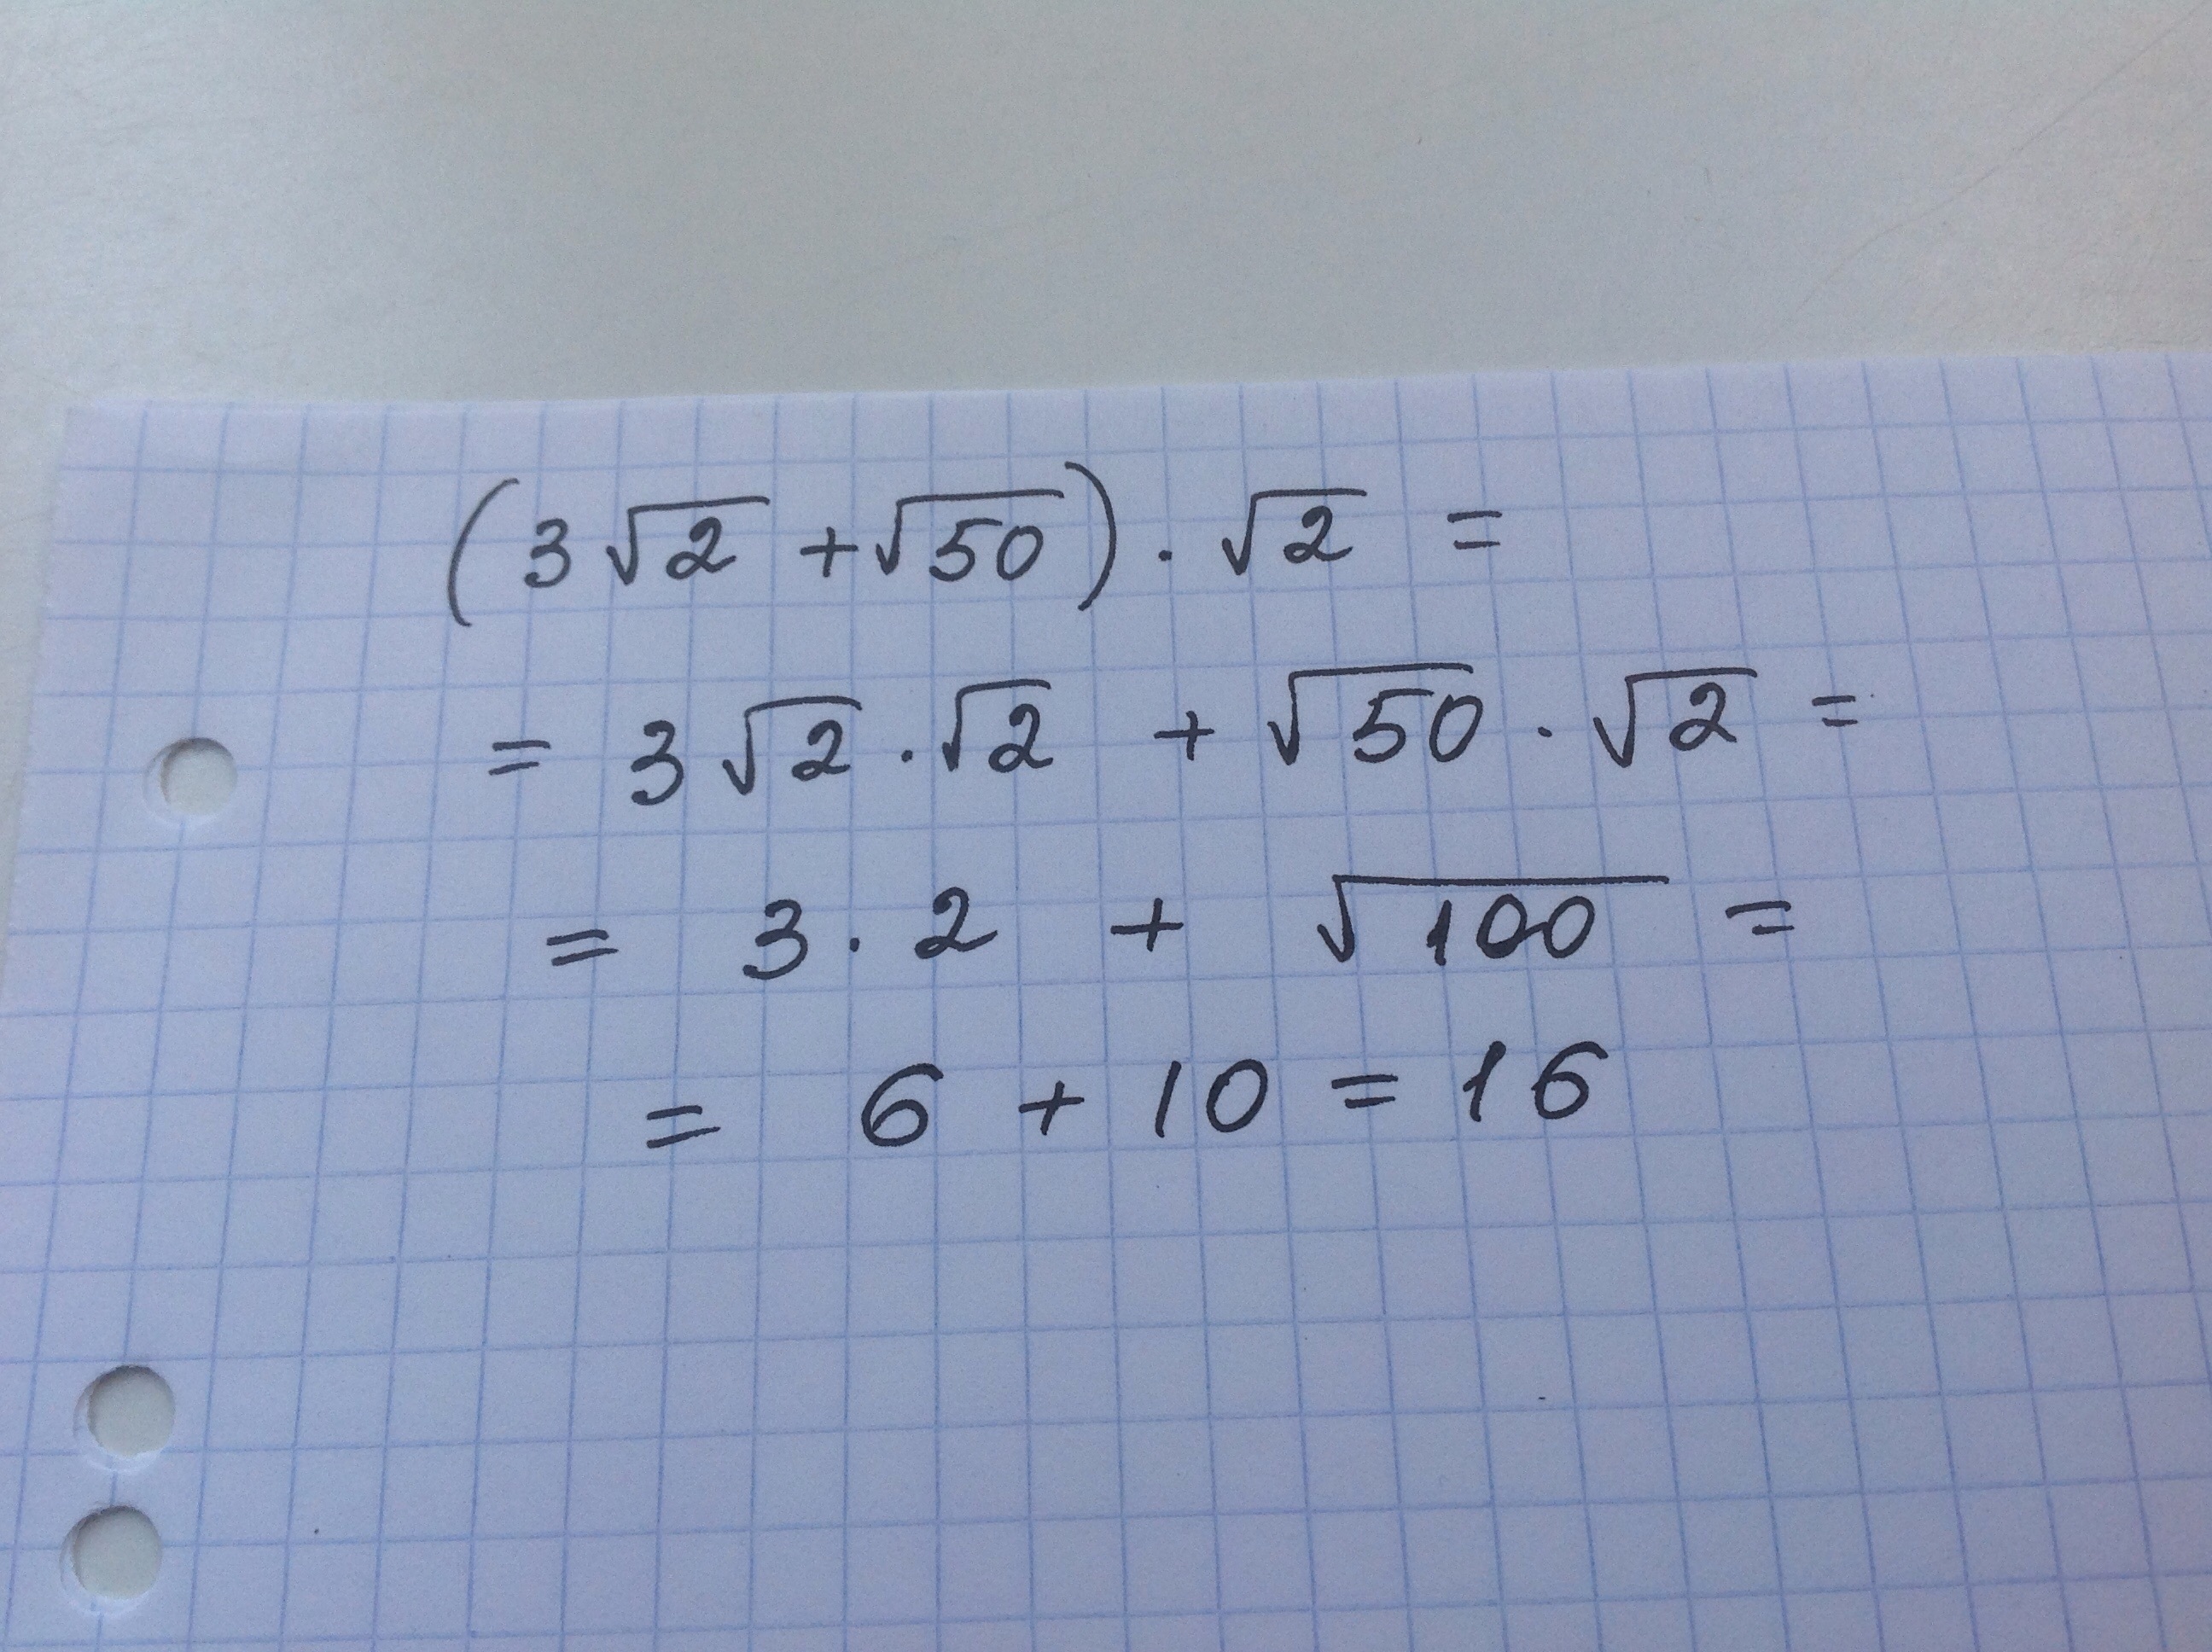 (3√2 + √50) · √2 =
= 3√2 · √2 + √50 · √2 =
= 3 · 2 + √100 =
= 6 + 10 = 16